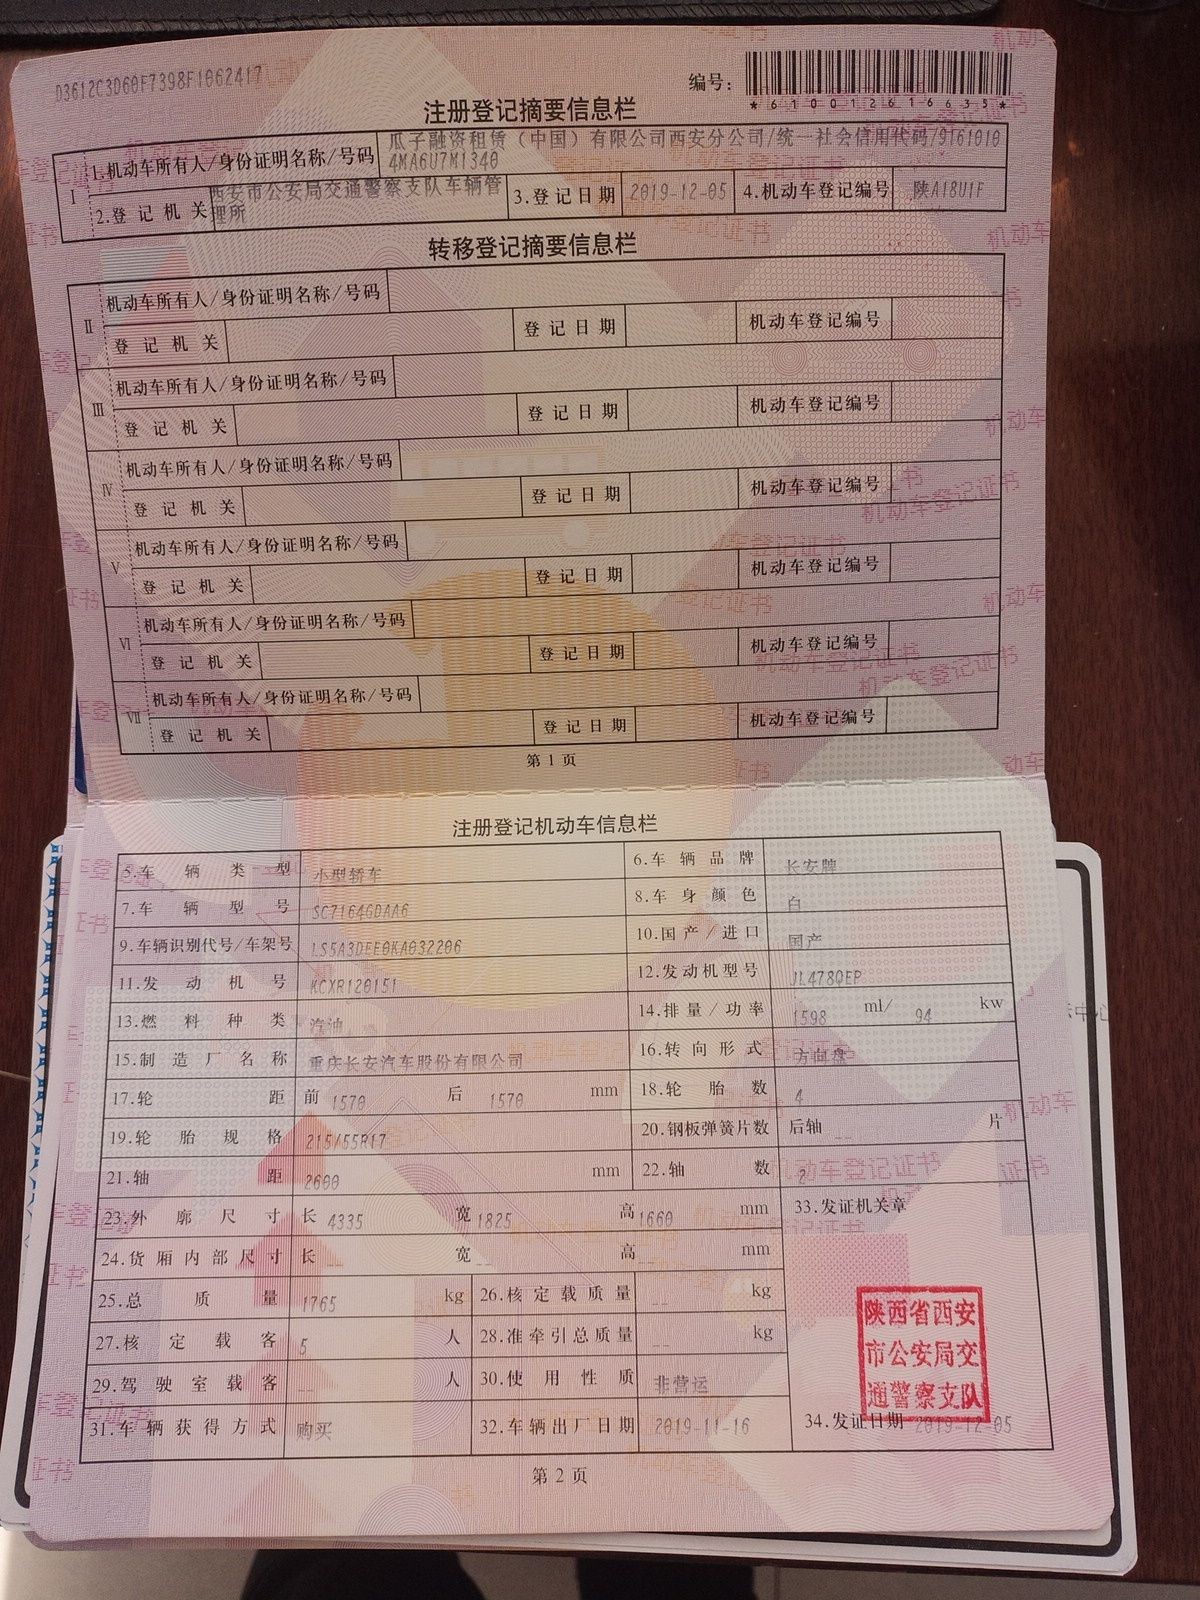 D3612C3D60F7398F1062417
编号：
*610012616635*
注册登记摘要信息栏
I
1.机动车所有人/身份证明名称/号码 瓜子融资租赁（中国）有限公司西安分公司/统一社会信用代码/9161010
4MA6U7M1340
2.登记机关 西安市公安局交通警察支队车辆管
理所
3.登记日期 2019-12-05 4.机动车登记编号 陕A18U1F
转移登记摘要信息栏
II 机动车所有人/身份证明名称/号码
登记机关 登记日期 机动车登记编号
III 机动车所有人/身份证明名称/号码
登记机关 登记日期 机动车登记编号
IV 机动车所有人/身份证明名称/号码
登记机关 登记日期 机动车登记编号
V 机动车所有人/身份证明名称/号码
登记机关 登记日期 机动车登记编号
VI 机动车所有人/身份证明名称/号码
登记机关 登记日期 机动车登记编号
VII 机动车所有人/身份证明名称/号码
登记机关 登记日期 机动车登记编号
第1页
注册登记机动车信息栏
5.车辆类型 小型轿车 6.车辆品牌 长安牌
7.车辆型号 SC7164GDAA6 8.车身颜色 白
9.车辆识别代号/车架号 LS5A3DEE0KA032206 10.国产/进口 国产
11.发动机号 KCXR120151 12.发动机型号 JL478QEP
13.燃料种类 汽油 14.排量/功率 1598 ml/ 94 kw
15.制造厂名称 重庆长安汽车股份有限公司 16.转向形式 方向盘
17.轮距 前 1570 后 1570 mm 18.轮胎数 4
19.轮胎规格 215/55R17 20.钢板弹簧片数 后轴 -- 片
21.轴距 2600 mm 22.轴数 2
23.外廓尺寸 长 4335 宽 1825 高 1660 mm 33.发证机关章
24.货厢内部尺寸 长 -- 宽 -- 高 -- mm
25.总质量 1765 kg 26.核定载质量 -- kg
27.核定载客 5 人 28.准牵引总质量 -- kg
29.驾驶室载客 -- 人 30.使用性质 非营运
31.车辆获得方式 购买 32.车辆出厂日期 2019-11-16 34.发证日期 2019-12-05
陕西省西安
市公安局交
通警察支队
第2页